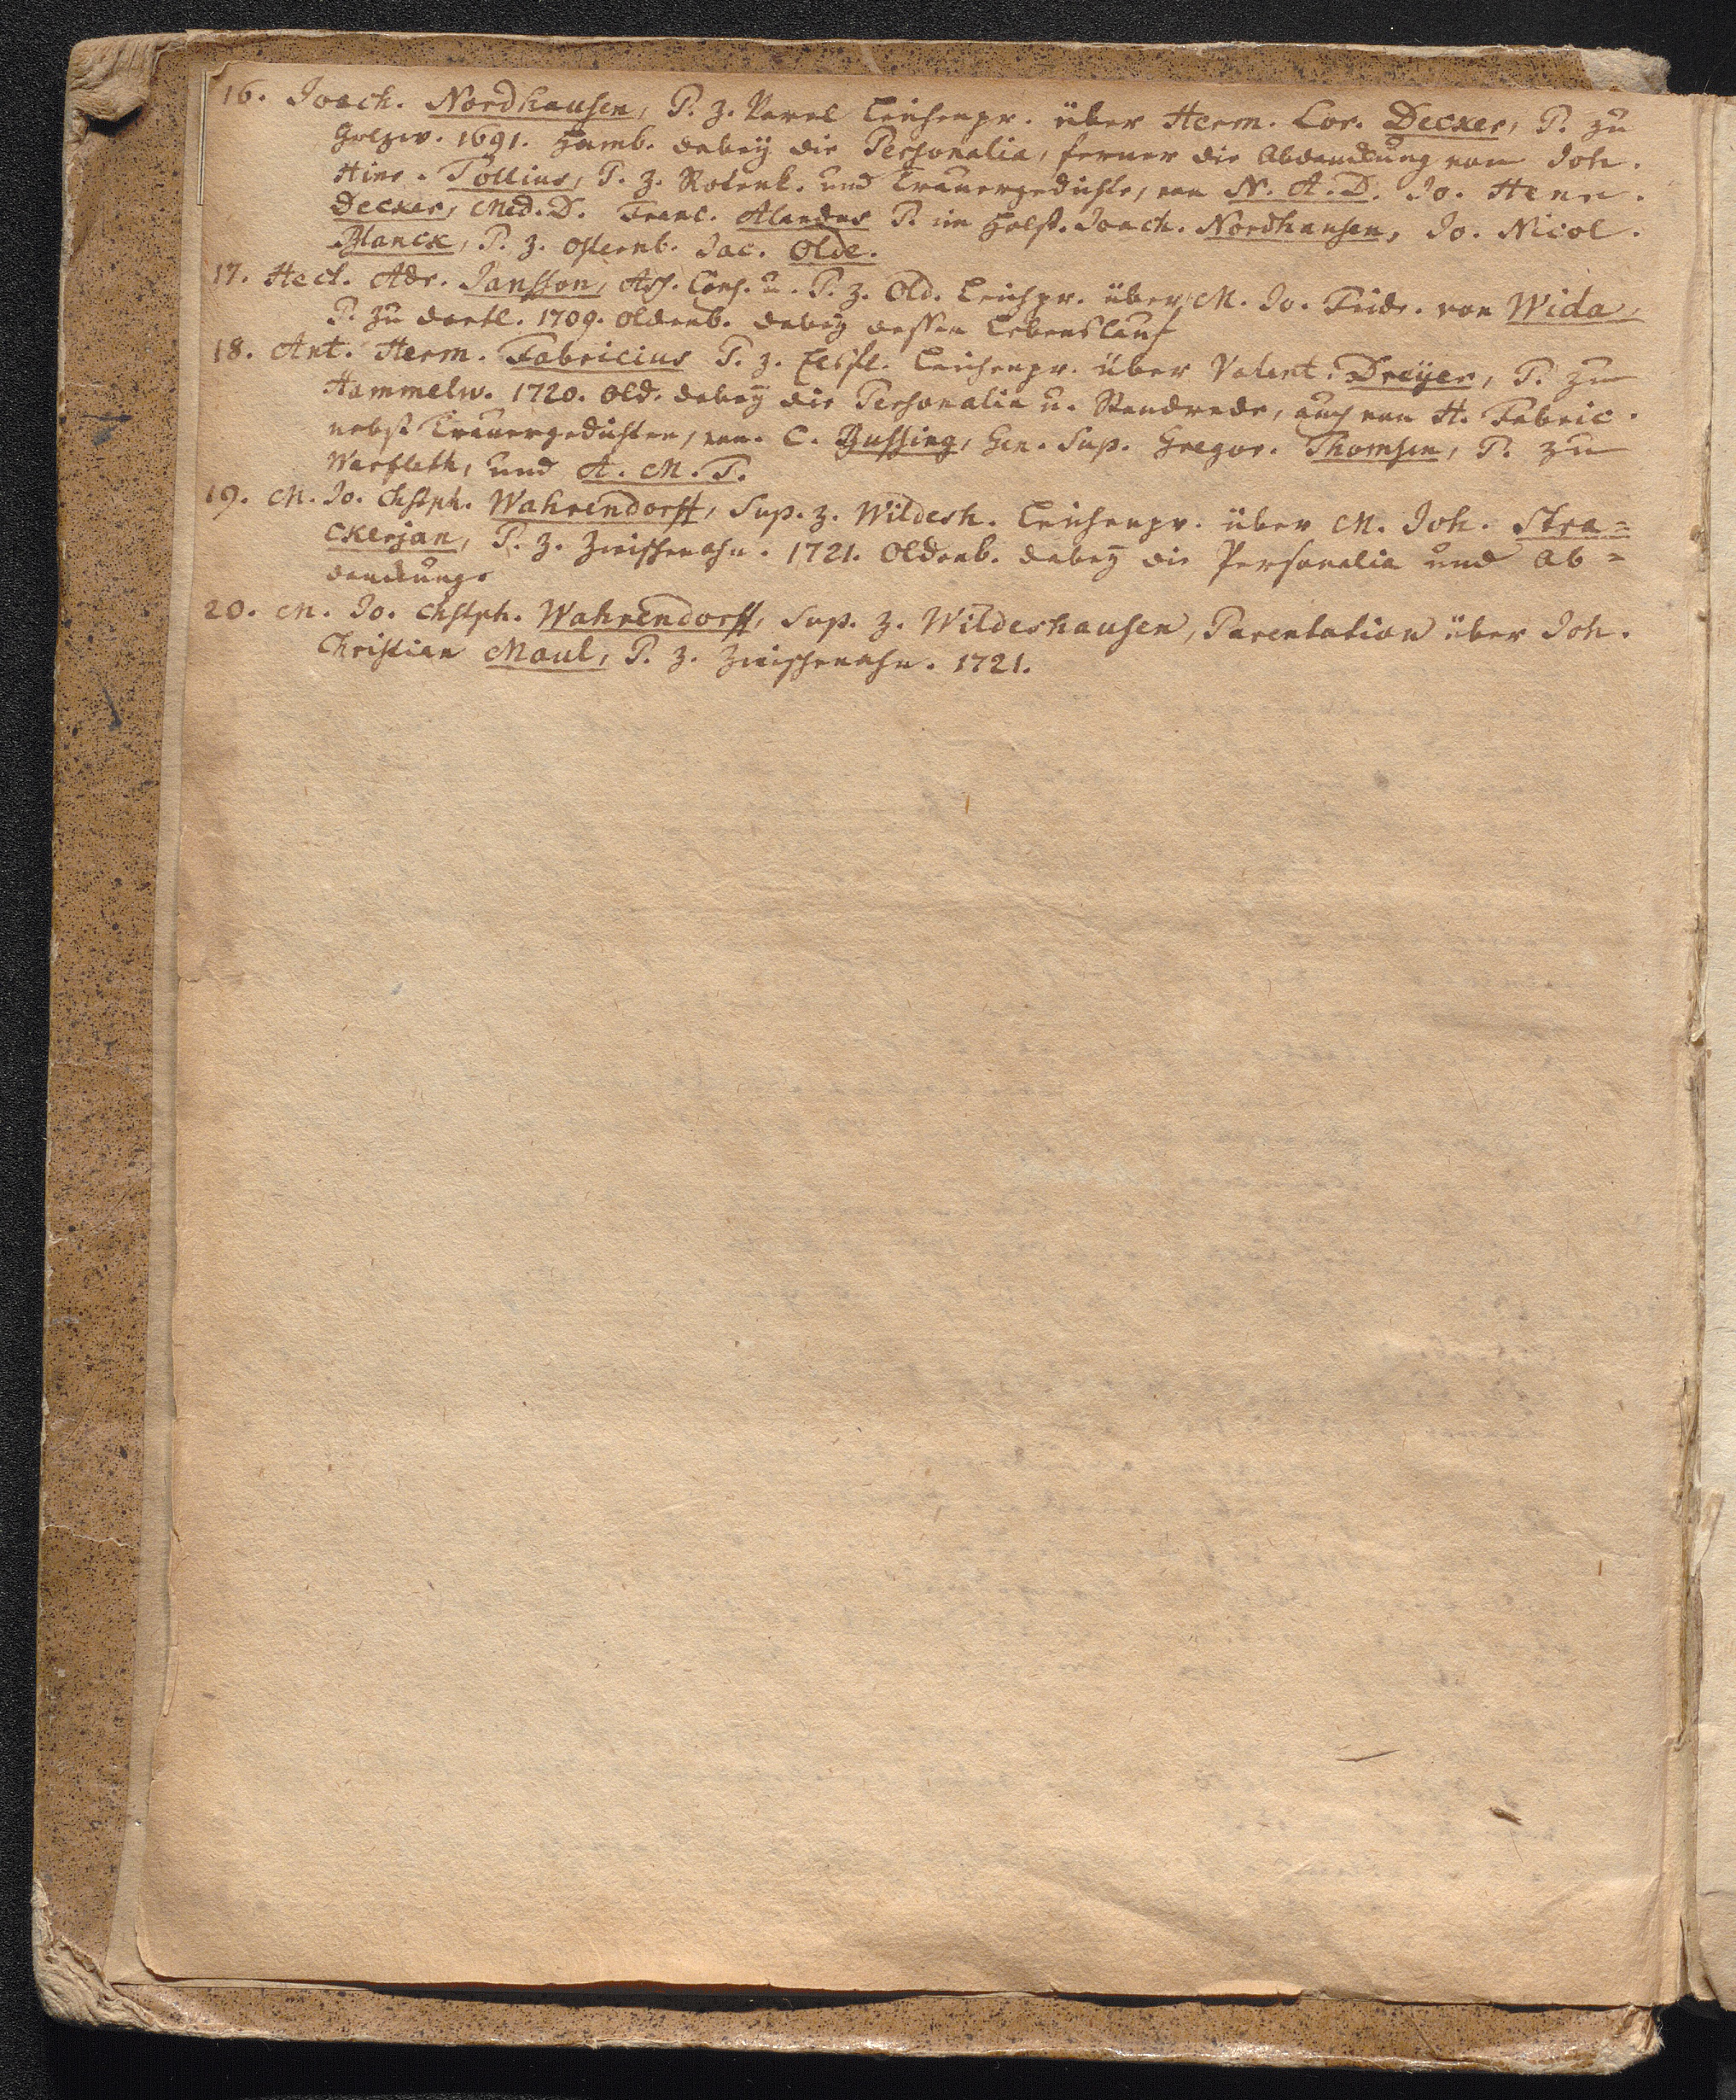 16. Joach. Nordhausen, P. z. Varel Leichenpr. über Herm. Lor. Decker, P. zu
Golzw. 1691. Hamb. dabeÿ die Personalia, ferner die Abdanckung von Joh.
Hinr. Töllius, P. z. Rotenk. und Trauergedichte, von N. A. D. Jo. Henr.
Decker, Med. D. Franc. Alardus P. im Holst. Joach. Nordhausen, Jo. Nicol.
Blanck, P. z. Osternb. Jac. Olde.
17. Hect. Adr. Jansson, Ass. Cons. u. P. z. Old. Leichpr. über M. Jo. Fridr. von Wida,
P. zu Voetl. 1709. Oldenb. dabeÿ dessen Lebenslauf
18. Ant. Herm. Fabricius P. z. Elsfl. Leichenpr. über Valent. Dreÿer, P. zu
Hammelw. 1720. Old. dabeÿ die Personalia u. Standrede, auch von H. Fabric.
nebst Trauergedichten, von C. Bussing, Gen. Sup. Gregor. Thomsen, P. zu
Warfleth, und A. M. T.
19. M. Jo. Chstph. Wahrendorff, Sup. z. Wildesh. Leichenpr. über M. Joh. Stra=
ckerjan, P. z. Zwischenahn. 1721. Oldenb. dabeÿ die Personalia und Ab=
danckung.
20. M. Jo. Chstph. Wahrendorff, Sup. z. Wildeshausen, Parentation über Joh.
Christian Maul, P. z. Zwischenahn. 1721.